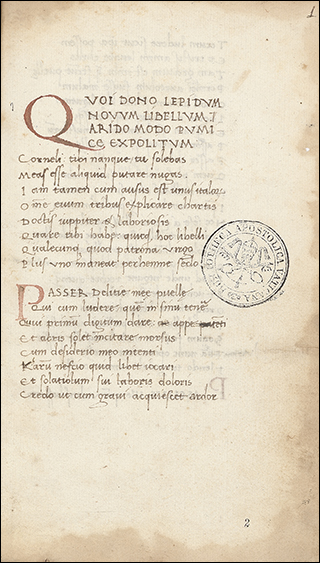 1
QVOI DONO LEPIDVM
NOVVM LIBELLVM
ARIDO MODO PVMI
CE EXPOLITVM
Corneli tibi nanque tu solebas
Meas esse aliquid putare nugas.
Iam tamen cum ausus est unus italor
Omne euum tribus explicare chartis
Doctis iuppiter & laboriosis
Quare tibi habe quicq hoc libelli
Qualecunq quod patrona uirgo
Plus uno maneat perhenne seclo
BIBLIOTHECA APOSTOLICA VATICANA
PASSER Delitie mee puelle
Qui cum ludere quē in sinu tenē
Quoi primū digitum dare
Et acris solet incitare morsus
Cum desiderio meo nitenti
Karum nescio quid libet iocari
Et solatiolum sui laboris doloris
Credo ut cum graui acquiescet ardor
2